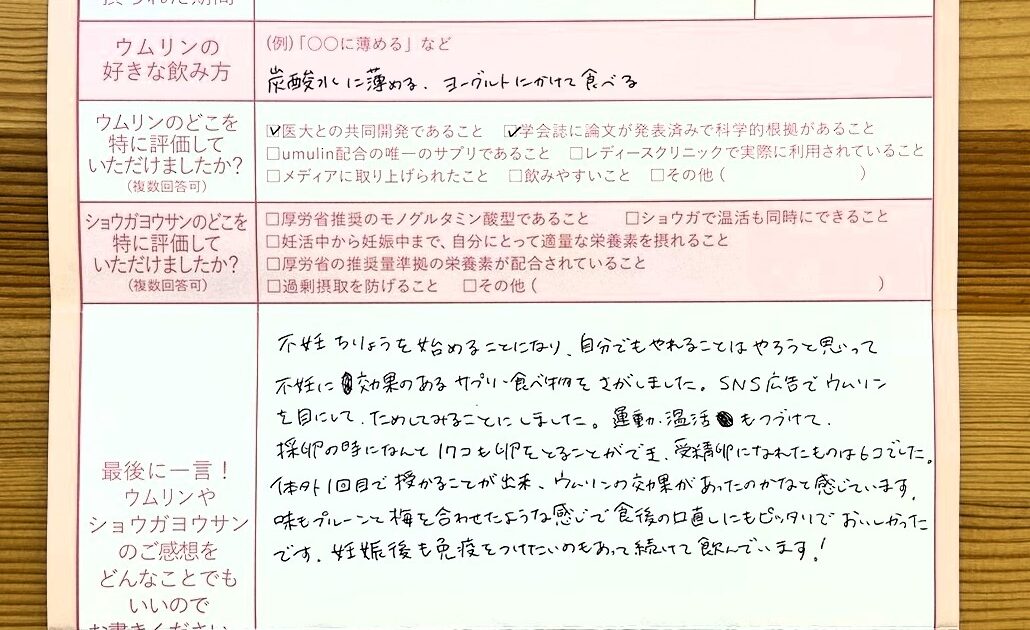 摂られた期間
ウムリンの
好きな飲み方
(例)「〇〇に薄める」など
炭酸水に薄める、ヨーグルトにかけて食べる
ウムリンのどこを
特に評価して
いただけましたか?
(複数回答可)
☑医大との共同開発であること ☑学会誌に論文が発表済みで科学的根拠があること
□umulin配合の唯一のサプリであること □レディースクリニックで実際に利用されていること
□メディアに取り上げられたこと □飲みやすいこと □その他 ( )
ショウガヨウサンのどこを
特に評価して
いただけましたか?
(複数回答可)
□厚労省推奨のモノグルタミン酸型であること □ショウガで温活も同時にできること
□妊活中から妊娠中まで、自分にとって適量な栄養素を摂れること
□厚労省の推奨量準拠の栄養素が配合されていること
□過剰摂取を防げること □その他 ( )
最後に一言!
ウムリンや
ショウガヨウサン
のご感想を
どんなことでも
いいので
お書きください。
不妊ちりょうを始めることになり、自分でもやれることはやろうと思って
不妊に効果のあるサプリ・食べ物をさがしました。SNS広告でウムリン
を目にして、ためしてみることにしました。運動、温活もつづけて、
採卵の時になんと17コも卵をとることができ、受精卵になれたものは6コでした。
体外1回目で授かることが出来、ウムリンの効果があったのかなと感じています。
味もプルーンと梅を合わせたような感じで食後の口直しにもピッタリでおいしかった
です。妊娠後も免疫をつけたいのもあって続けて飲んでいます!